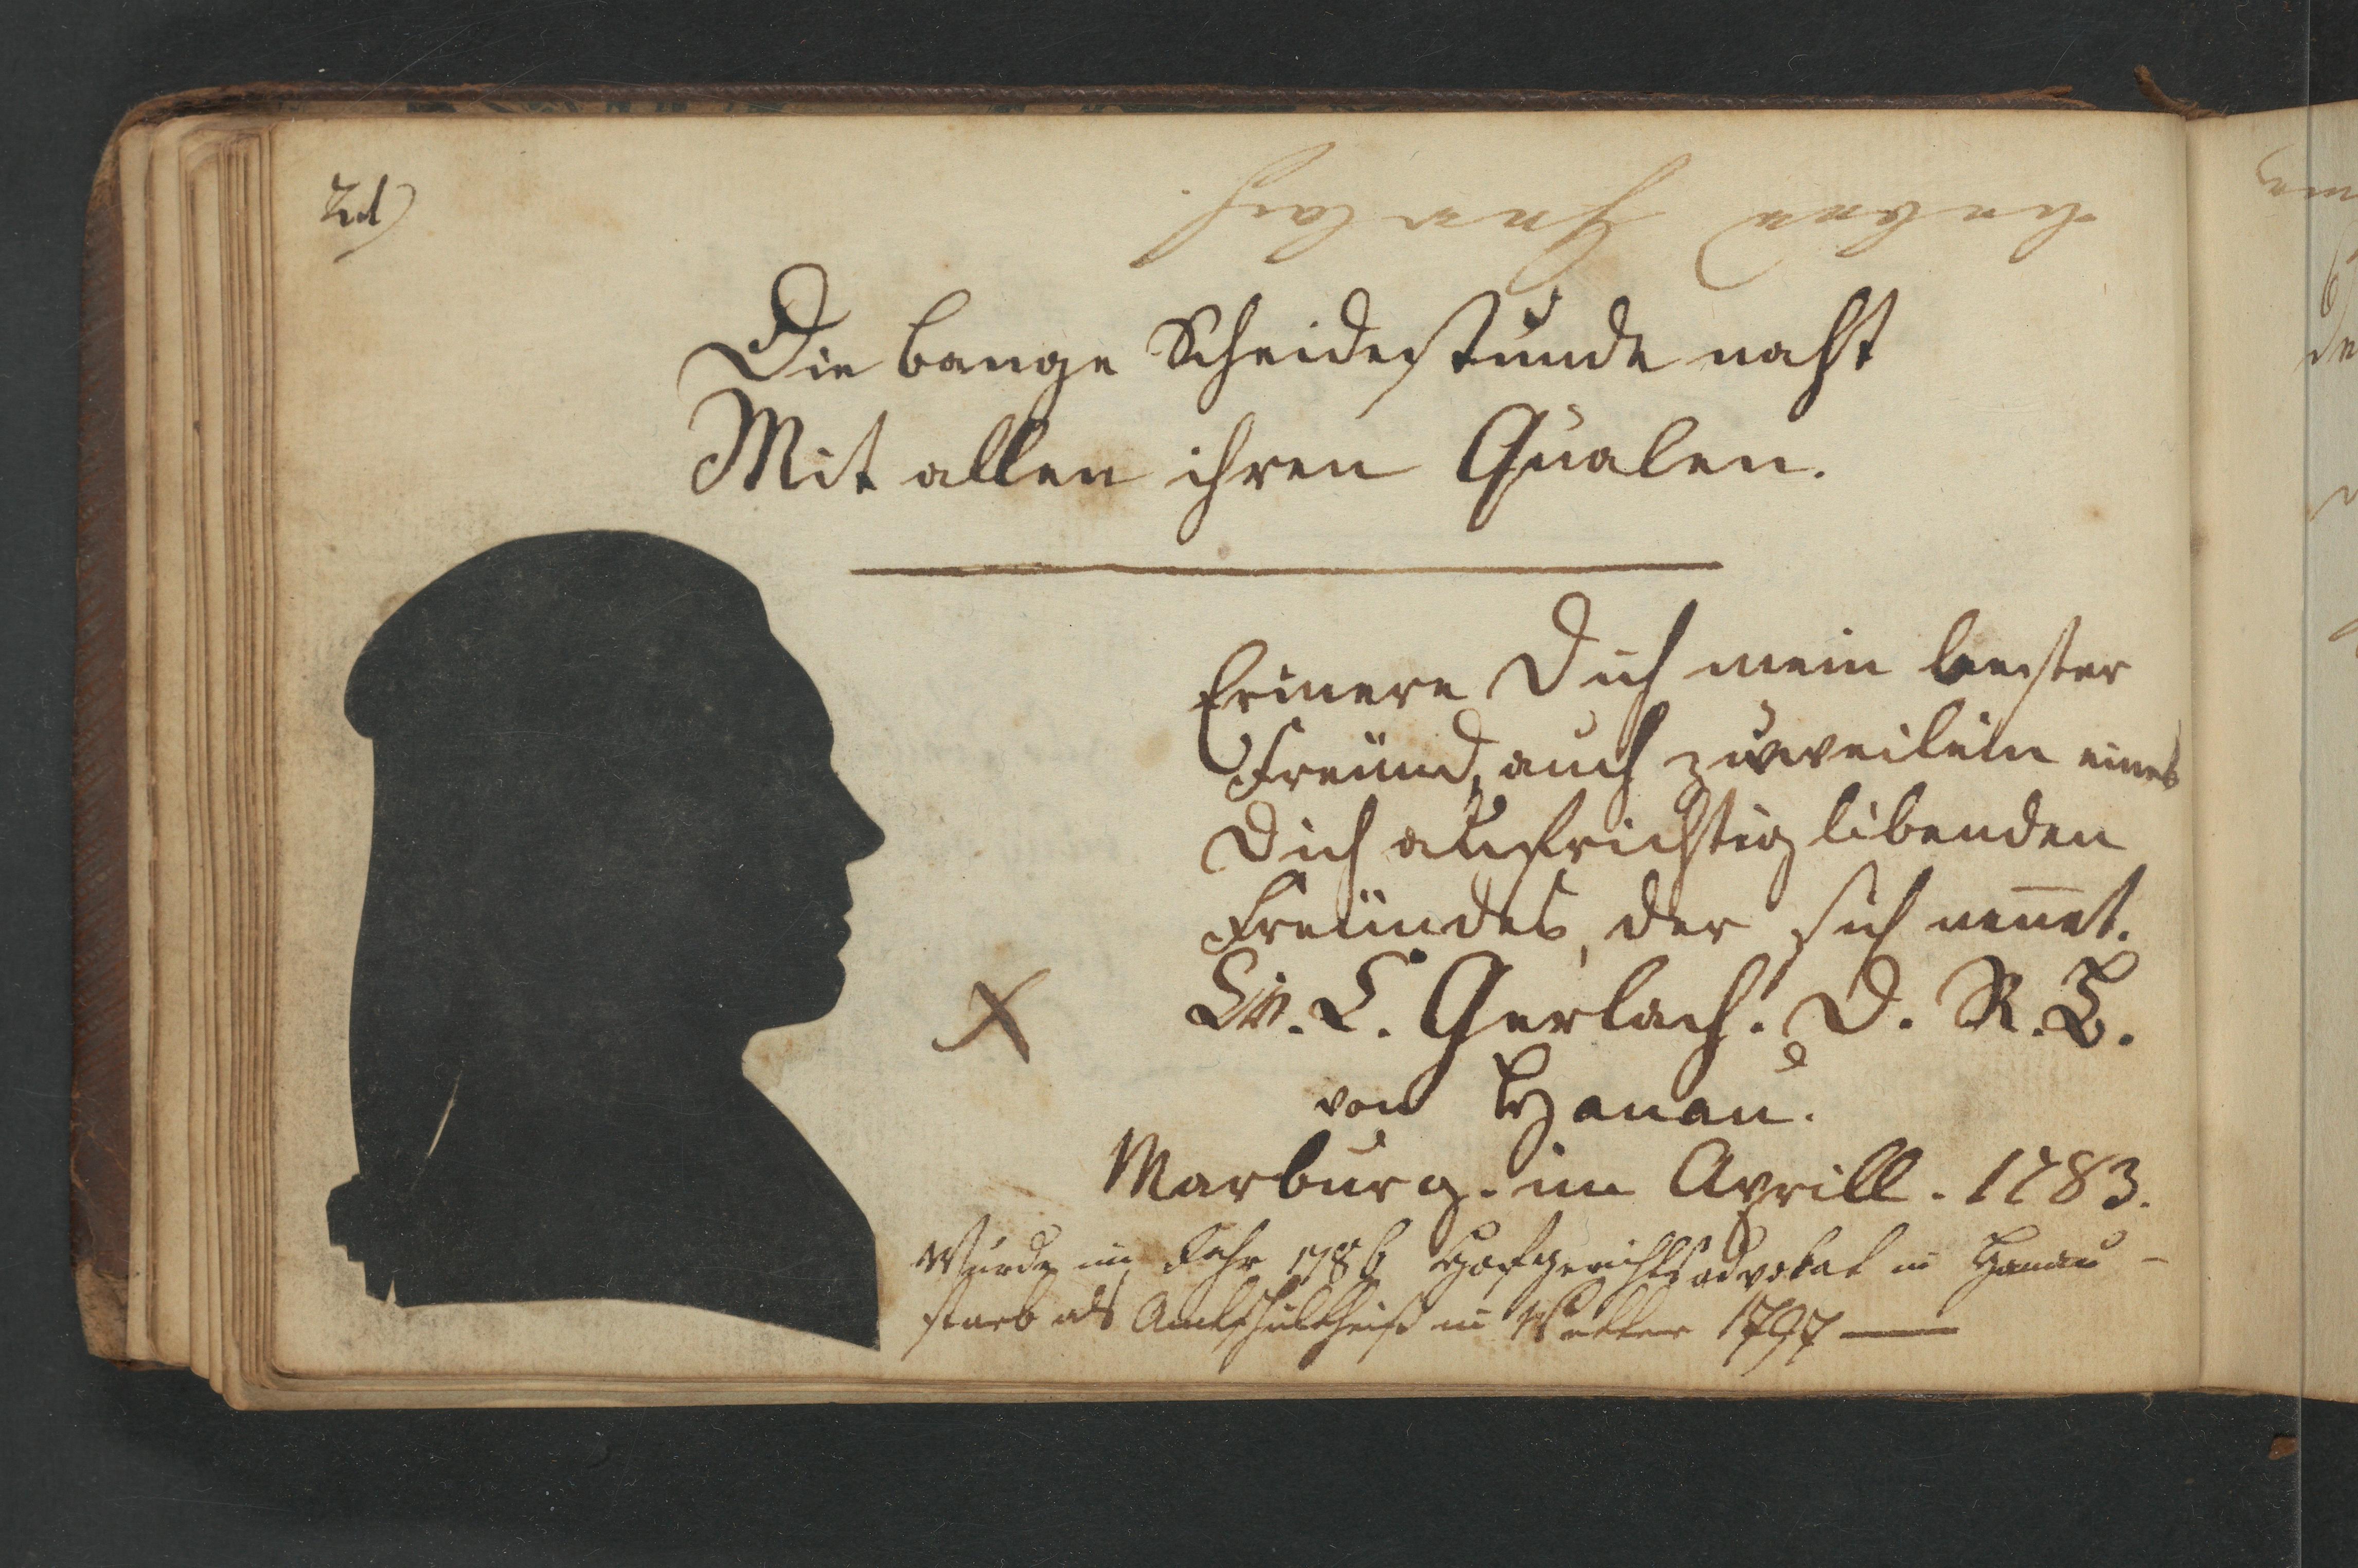 Die bange Scheidestunde naht
Mit allen ihren Qualen.
Erinere Dich mein bester
Freünd, auch zuweilein eines
Dich aufrichtig libenden
Freündes, der sich nen̅et.
L. Gerlach. D. R. B.
von Hanau.
Marburg. im Aprill. 1783.
Wurde im Jahr 1786 Hofgerichtsadvokat in Hanau -
starb als Amtschultheiß in Wetter 1797 —